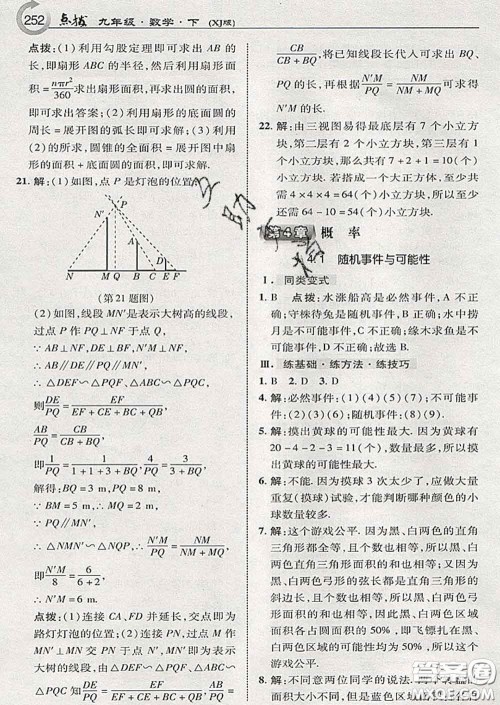 252 点拨 九年级·数学·下 (XJ版)
点拨：(1)利用勾股定理即可求出 AB 的长，即扇形 ABC 的半径，然后利用扇形面
积=nπr²/360求出扇形面积，再求出圆的面积，
即可求出答案；(2)利用扇形的底面圆的
周长=展开图的弧长即可求解；(3)利用
(2)的所求，圆锥的全面积=展开图中扇
形的面积+底面圆的面积，即可求出.
21. 解：(1)如图，点 P 是灯泡的位置.
N′ P
N
M′ M Q B C E F
(第 21 题图)
(2)如图，线段 MN′是表示大树高的线段，过
点 P 作 PQ⊥NF 于点 Q.
∵ AB⊥NF, DE⊥NF, PQ⊥NF,
∴ AB∥DE∥PQ∥MN′.
∴ △DEF∽△PQF, △ABC∽△PQC,
则 DE/PQ = EF/(EF+CE+BC+QB),
AB/PQ = CB/(CB+BQ),
即 1/PQ = 1/(1+3+1+BQ) = 1/(1+BQ).
解得：BQ=3 m, PQ=8 m.
∵ BM=5 m, ∴ MQ=2 m.
∵ PQ∥MN′,
∴ △MNN′∽△NQP, ∴ N′M/PQ = NM/NQ,
即 N′M/8 = 6/(6+2),
∴ N′M=6 m.
点拨：(1)连接 CA, FD 并延长，交点即为
路灯灯泡的位置；(2)连接 PN，过点 M 作
MN′⊥NF 交 PN 于点 N′，MN′即为表示
大树的线段，由△DEF∽△PQF，△ABC
∽△PQC 知 DE/PQ = EF/(EF+CE+BC+QB),
AB/PQ = CB/(CB+BQ)，将已知线段代入求出 BQ，PQ
的长，再根据 N′M/PQ = NM/NQ = NM/(NM+MQ) 可得出
N′M 的长.
22. 解：由三视图易得最底层有 7 个小立方
块，第二层有 2 个小立方块，第三层有 1
个小立方块，那么共有 7+2+1=10(个)
小立方块，若搭成一个大正方体，至少共
需 4×4×4=64(个)小立方块，所以至少
还需 64−10=54(个)小立方块.
第4章 概 率
4.1 随机事件与可能性
Ⅰ. 同类变式
1. B 点拨：水涨船高是必然事件，A 不正
确；守株待兔是随机事件，B 正确；水中捞
月是不可能事件，C 不正确；缘木求鱼是不
可能事件，D 不正确；故选 B.
Ⅲ. 练基础·练方法·练技巧
1. B 2. D 3. D
4. 解：必然事件：(1)(4)(5)(7)；不可能事
件：(2)(3)(6)；随机事件：(8)(9).
5. 解：摸出黄球的可能性最大. 因为黄球的
数量最多，且每个球被摸到的机会均等，所以
摸出黄球的可能性最大.
6. 解：因为摸球 3 次太少，应该做大量
重复(摸球)试验，才能判断哪种颜色的小
球数量较多.
7. 解：这个游戏公平. 因为黑、白两色的直角
三角形都全等，且个数也相等，所以黑、白
两色直角三角形的面积和也相等，又因为黑、
白两色弓形的弦长都是直角三角形的斜
边长，且个数也相等，所以黑、白两色弓
形的面积和也相等，因此黑、白两色区域
面积各占圆面积的 50%，即飞镖扎在黑、
白两色区域的可能性都是 50%，所以这
个游戏公平.
8. 解：不同意两位同学的说法. 因为蓝色区域
面积大小不相同，但是蓝色区域占整个圆
答案圈
MXQE.COM